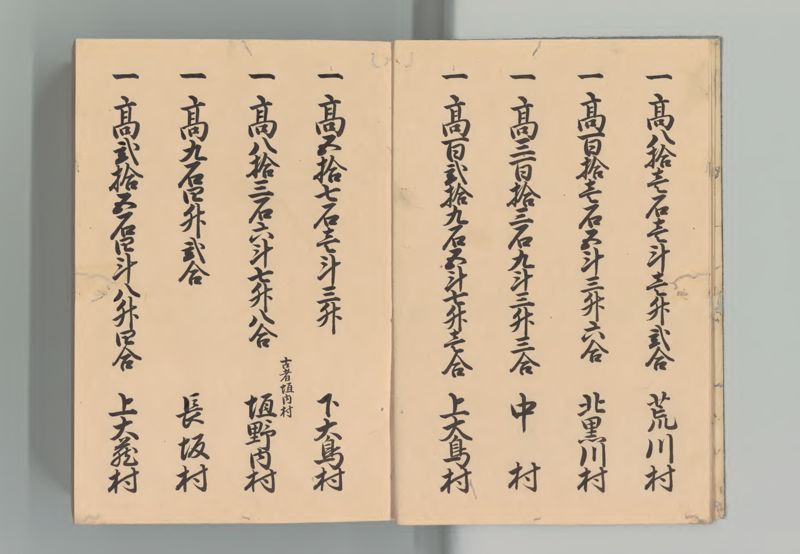 一 高八拾壱石壱斗壱升弐合 荒川村
一 高百拾壱石五斗三升六合 北黒川村
一 高三百拾三石九斗三升三合 中村
一 高百弐拾九石五斗七升壱合 上大鳥村
一 高五拾七石壱斗三升 下大鳥村
古者垣内村
一 高八拾三石六斗七升八合 垣野内村
一 高九石四升弐合 長坂村
一 高弐拾五石四斗八升四合 上大蔵村